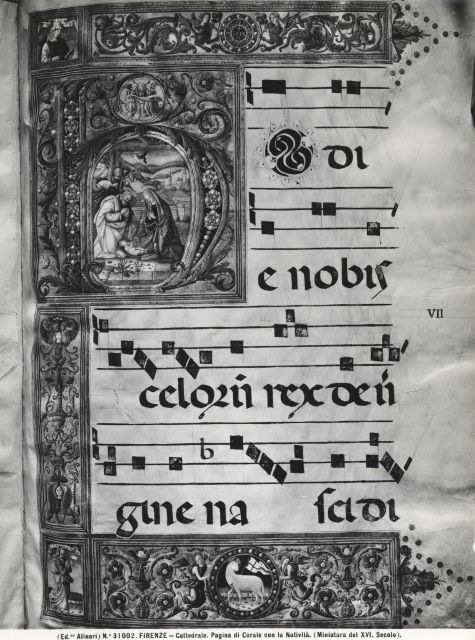 HODI
e nobis
VII
celorū rex de ūi
b
gine na sci di
(Ed.ne Alinari) N.º 31002. FIRENZE – Cattedrale. Pagina di Corale con la Natività. (Miniatura del XVI. Secolo.)